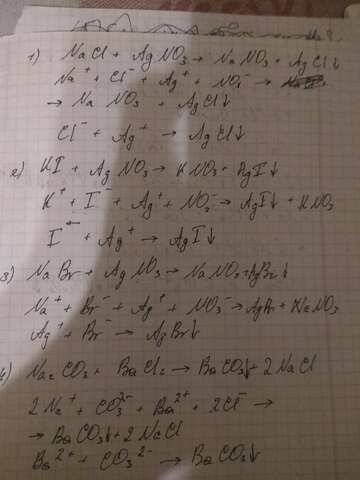 1) NaCl + AgNO₃ → NaNO₃ + AgCl↓
Na⁺ + Cl⁻ + Ag⁺ + NO₃⁻ →
→ NaNO₃ + AgCl↓
Cl⁻ + Ag⁺ → AgCl↓
2) KI + AgNO₃ → KNO₃ + AgI↓
K⁺ + I⁻ + Ag⁺ + NO₃⁻ → AgI↓ + KNO₃
I⁻ + Ag⁺ → AgI↓
3) NaBr + AgNO₃ → NaNO₃ + AgBr↓
Na⁺ + Br⁻ + Ag⁺ + NO₃⁻ → AgBr + NaNO₃
Ag⁺ + Br⁻ → AgBr↓
4) Na₂CO₃ + BaCl₂ → BaCO₃↓ + 2NaCl
2Na⁺ + CO₃²⁻ + Ba²⁺ + 2Cl⁻ →
→ BaCO₃↓ + 2NaCl
Ba²⁺ + CO₃²⁻ → BaCO₃↓